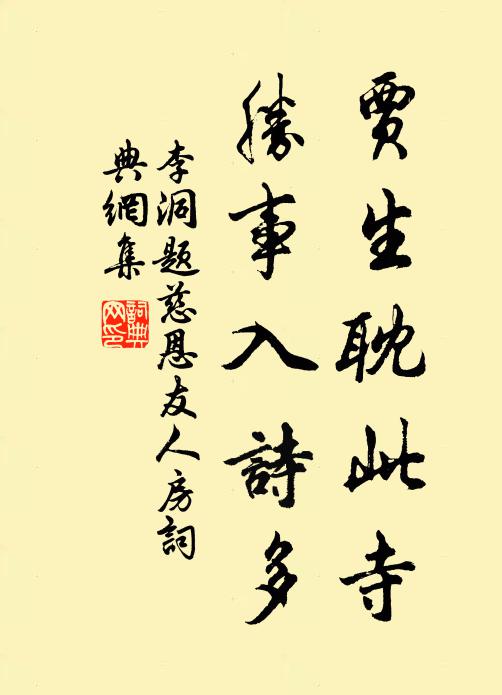 賈生耽此寺
勝事入詩多
李洞題慈恩友人房詞
典網集
詞典
网印